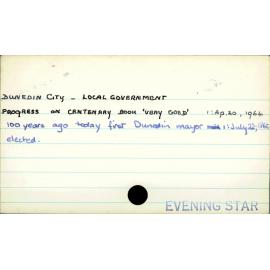 DUNEDIN CITY - LOCAL GOVERNMENT
PROGRESS ON CENTENARY BOOK 'VERY GOOD' 1: Ap. 20, 1966
100 years ago today first Dunedin mayor 1: July 22, 1965
elected.
EVENING STAR